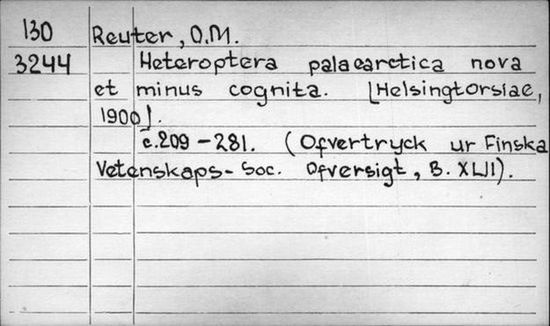 130 Reuter, O.M.
3244 Heteroptera palaearctica nova
et minus cognita. [Helsingtorsiae,
1900].
c.209-281. (Ofvertryck ur Finska
Vetenskaps-Soc. Ofversigt, B. XLII).